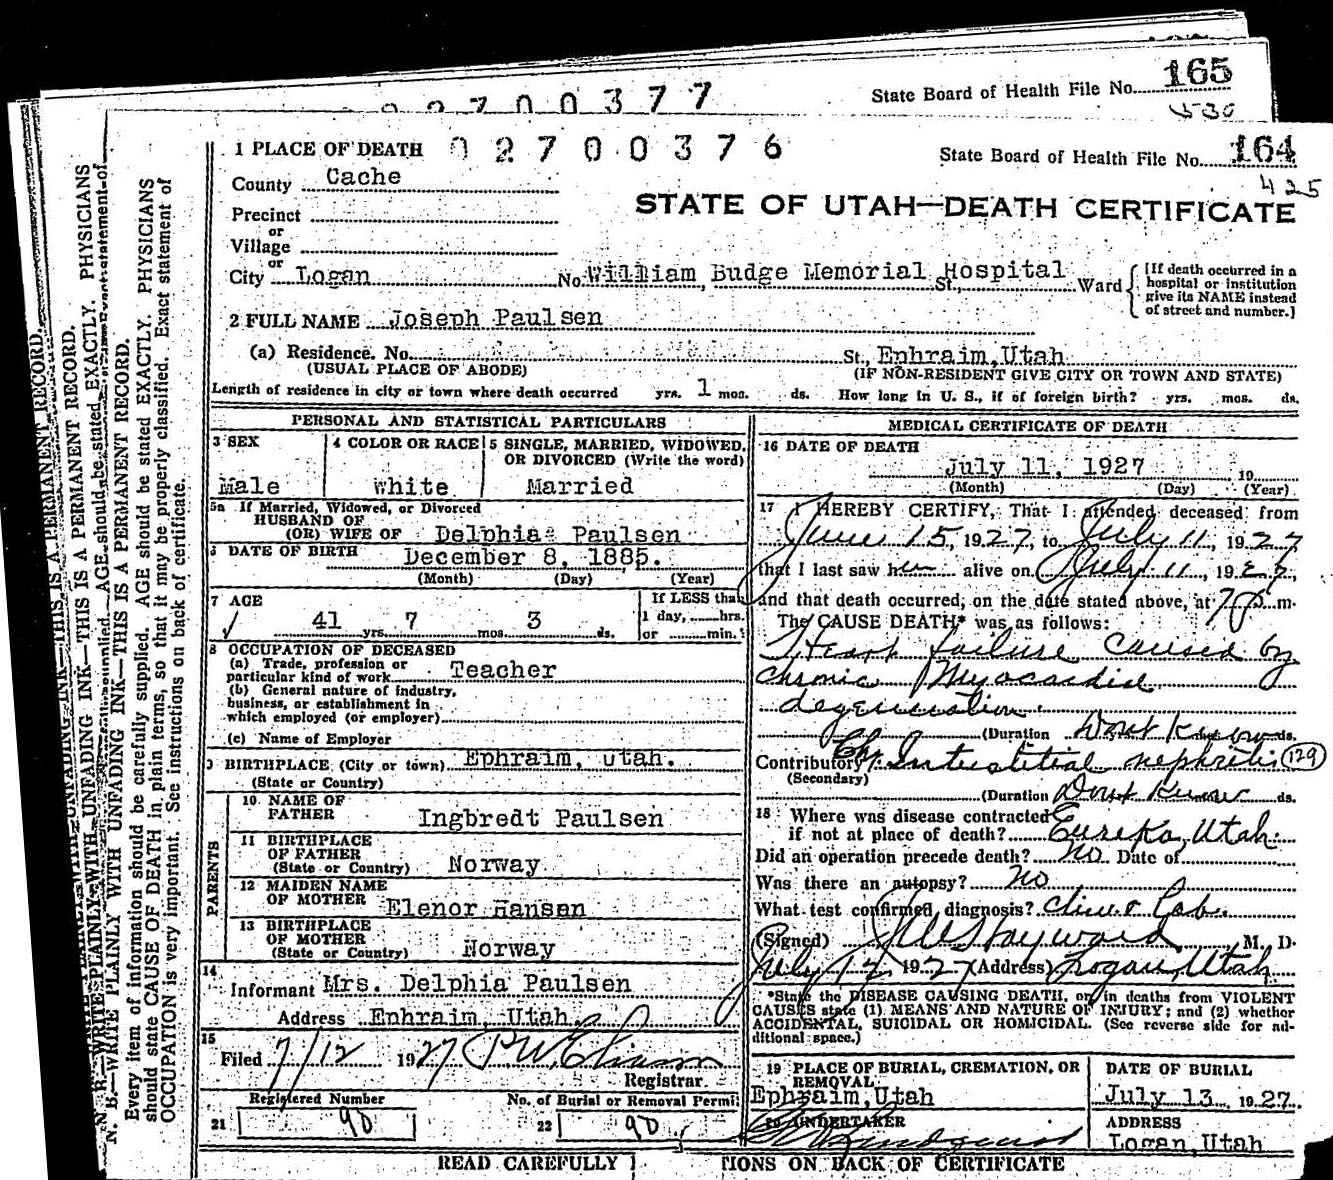 02700377
State Board of Health File No. 165
530
1 PLACE OF DEATH 02700376
State Board of Health File No. 164
425
County Cache
STATE OF UTAH—DEATH CERTIFICATE
Precinct
or
Village
or
City Logan No. William Budge Memorial Hospital St., Ward
[If death occurred in a hospital or institution give its NAME instead of street and number.]
2 FULL NAME Joseph Paulsen
(a) Residence. No. St. Ephraim, Utah
(USUAL PLACE OF ABODE) (IF NON-RESIDENT GIVE CITY OR TOWN AND STATE)
Length of residence in city or town where death occurred yrs. 1 mos. ds. How long in U. S., if of foreign birth? yrs. mos. ds.
PERSONAL AND STATISTICAL PARTICULARS
3 SEX
Male
4 COLOR OR RACE
White
5 SINGLE, MARRIED, WIDOWED, OR DIVORCED (Write the word)
Married
5a If Married, Widowed, or Divorced
HUSBAND OF
(OR) WIFE OF Delphia Paulsen
6 DATE OF BIRTH December 8, 1885.
(Month) (Day) (Year)
7 AGE
41 yrs. 7 mos. 3 ds.
If LESS than
1 day, hrs.
or min.
8 OCCUPATION OF DECEASED
(a) Trade, profession or
particular kind of work Teacher
(b) General nature of industry,
business, or establishment in
which employed (or employer)
(c) Name of Employer
9 BIRTHPLACE (City or town) Ephraim, utah.
(State or Country)
PARENTS
10 NAME OF
FATHER Ingbredt Paulsen
11 BIRTHPLACE
OF FATHER
(State or Country) Norway
12 MAIDEN NAME
OF MOTHER Elenor Hansen
13 BIRTHPLACE
OF MOTHER
(State or Country) Norway
14
Informant Mrs. Delphia Paulsen
Address Ephraim, Utah.
15
Filed 7/12 1927
Registrar
Registered Number
21 90
No. of Burial or Removal Permit
22 90
MEDICAL CERTIFICATE OF DEATH
16 DATE OF DEATH
July 11, 1927 19
(Month) (Day) (Year)
17 I HEREBY CERTIFY, That I attended deceased from
June 15, 1927, to July 11, 1927
that I last saw him alive on July 11, 1927,
and that death occurred, on the date stated above, at 7 P. m.
The CAUSE DEATH* was as follows:
Heart failure caused by
chronic Myocardial
degeneration.
(Duration Dont Know ds.
Contributory Ch. Interstitial nephritis 129
(Secondary)
(Duration Dont Know ds.
18 Where was disease contracted
if not at place of death? Eureka, Utah.
Did an operation precede death? No Date of
Was there an autopsy? No
What test confirmed diagnosis? Clin. & Lab.
(Signed) Hayward M. D.
July 12 1927 (Address) Logan, Utah
*State the DISEASE CAUSING DEATH, or in deaths from VIOLENT
CAUSES state (1) MEANS AND NATURE OF INJURY; and (2) whether
ACCIDENTAL, SUICIDAL OR HOMICIDAL. (See reverse side for ad-
ditional space.)
19 PLACE OF BURIAL, CREMATION, OR
REMOVAL
Ephraim, Utah
DATE OF BURIAL
July 13, 1927.
20 UNDERTAKER
ADDRESS
Logan, Utah
READ CAREFULLY TIONS ON BACK OF CERTIFICATE
N. B.—WRITE PLAINLY WITH UNFADING INK—THIS IS A PERMANENT RECORD.
Every item of information should be carefully supplied. AGE should be stated EXACTLY. PHYSICIANS
should state CAUSE OF DEATH in plain terms, so that it may be properly classified. Exact statement of
OCCUPATION is very important. See instructions on back of certificate.